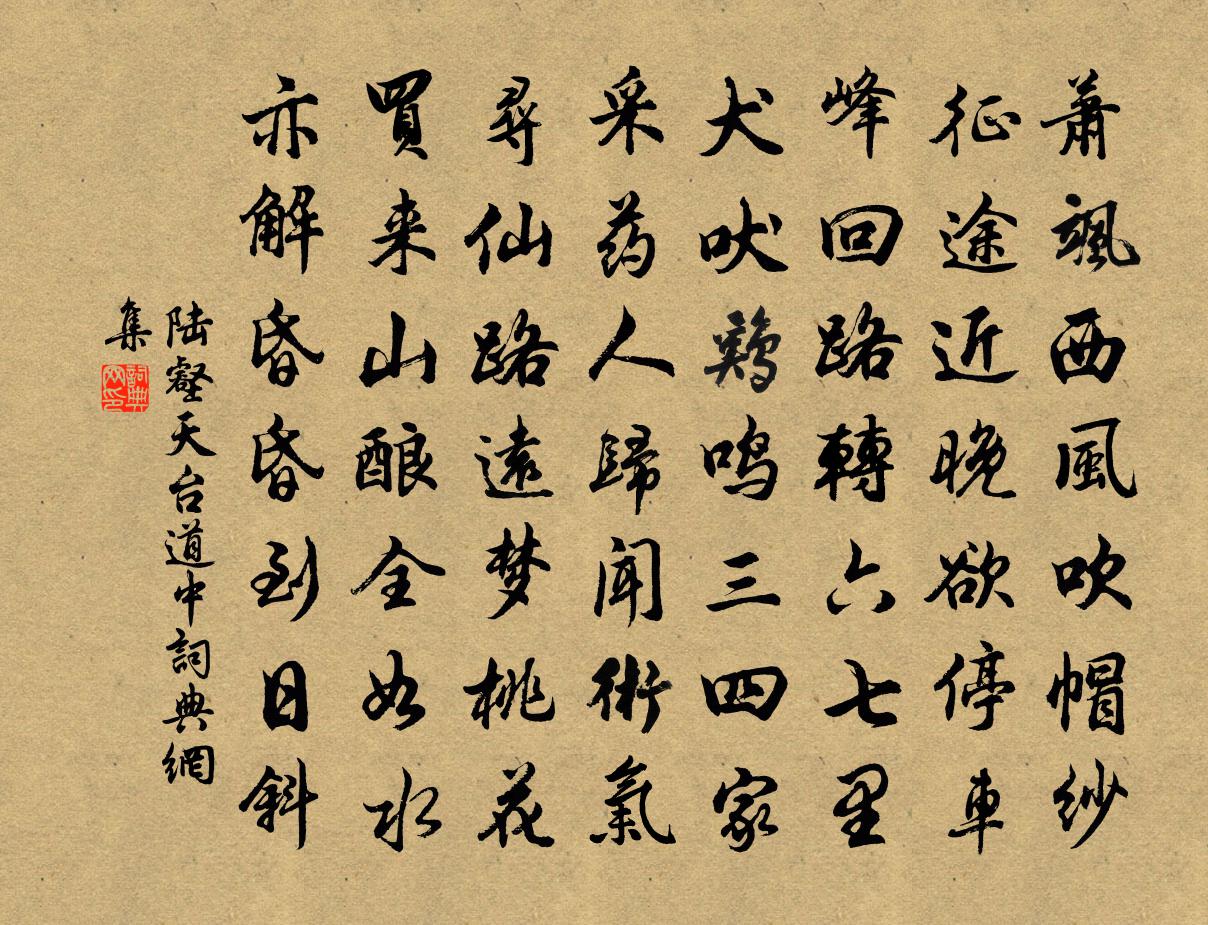 萧颯西風吹帽紗
征途近晚欲停車
峰回路轉六七里
犬吠鷄鸣三四家
采药人歸闻術氣
尋仙路遠梦桃花
買来山酿全如水
亦解昏昏到日斜
陆壑天台道中詞典網
集
詞典网印